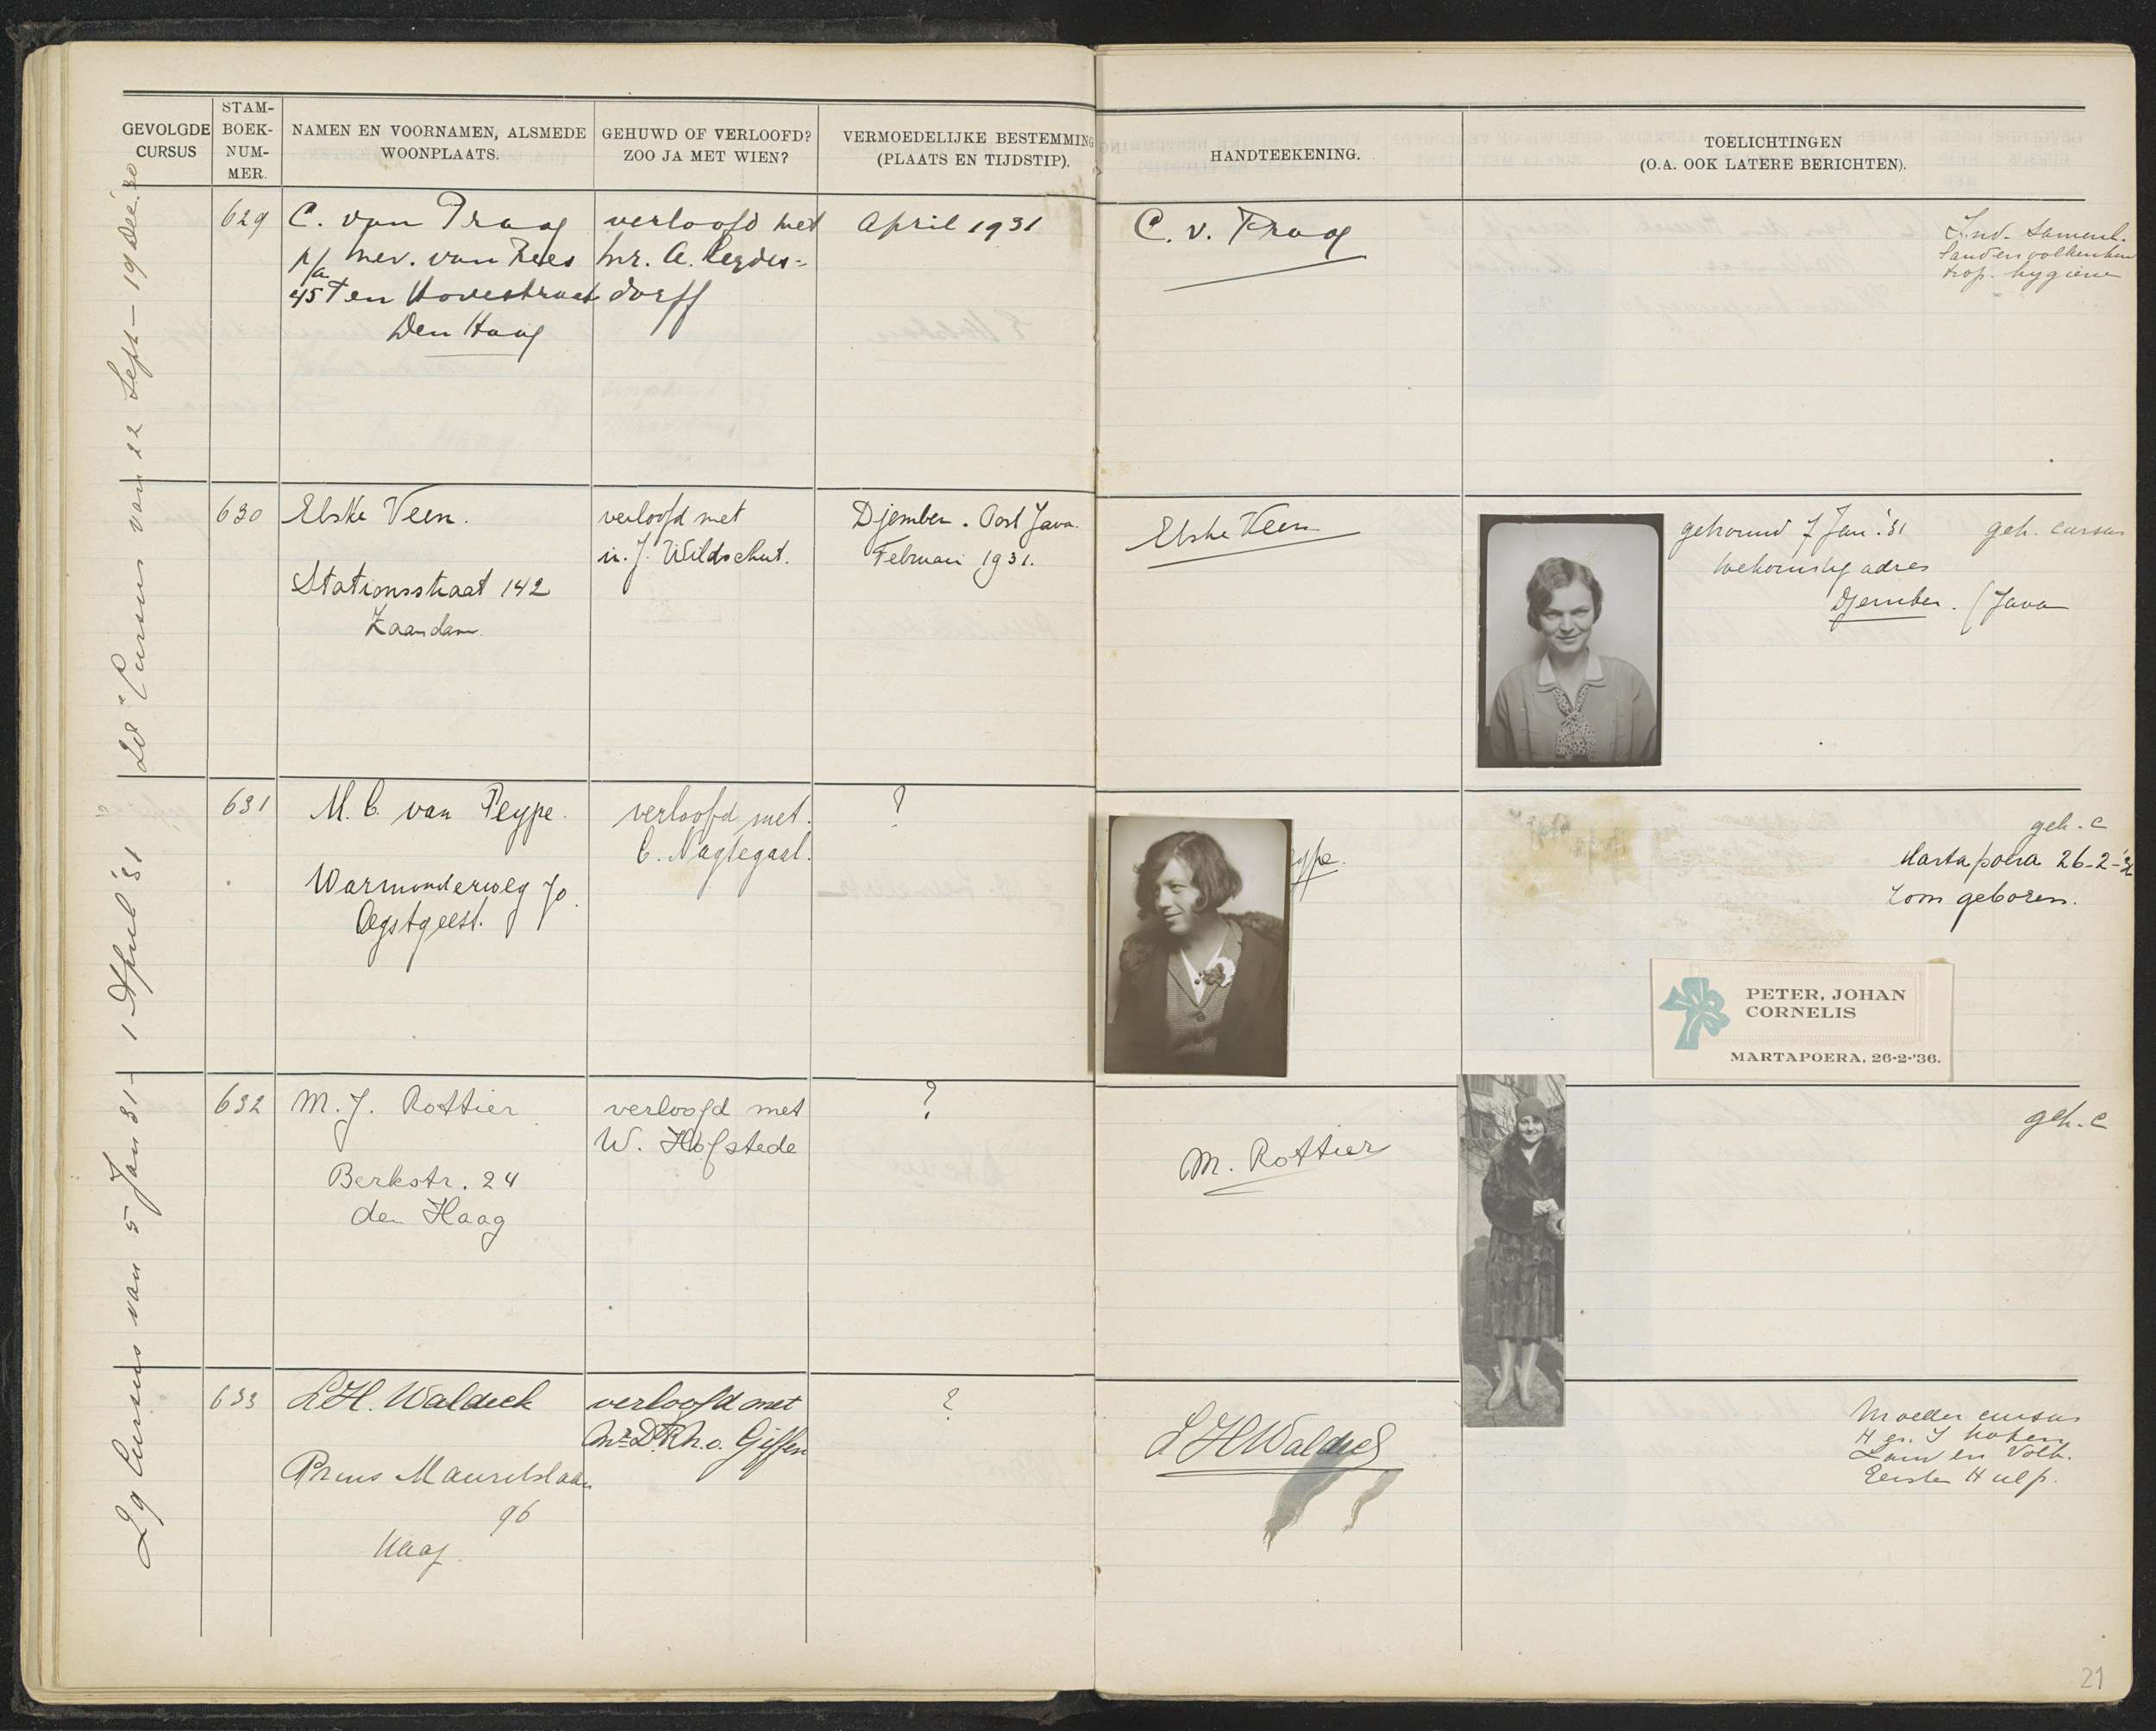 GEVOLGDE CURSUS
STAM-
BOEK-
NUM-
MER.
NAMEN EN VOORNAMEN, ALSMEDE
WOONPLAATS.
GEHUWD OF VERLOOFD?
ZOO JA MET WIEN?
VERMOEDELIJKE BESTEMMING
(PLAATS EN TIJDSTIP).
HANDTEEKENING.
TOELICHTINGEN
(O.A. OOK LATERE BERICHTEN).
28e Cursus van 22 Sept - 19 Dec. 30
629
C. van Praag
p/a Mev. van Rees
45 Ten Hovestraat
Den Haag
verloofd met
hr. A.
dorff
April 1931
C. v. Praag
Ind. Samenl.
Land en volkenkun
trop. hygiene
630
Elske Veen.
Stationsstraat 142
Zaandam.
verloofd met
J. Wildschut.
Djember. Oost Java.
Februari 1931.
Elske Veen
getrouwd 7 Jan. '31
toekomstig adres
Djember. (Java
geh. cursus
29 Cursus van 5 Jan 31 - 1 April '31
631
M. C. van Peype.
Warmonderweg 70.
Oegstgeest.
verloofd met.
C. Nagtegaal.
?
ype.
geh. c
Martapoera 26-2-'36
Zoon geboren.
PETER, JOHAN
CORNELIS
MARTAPOERA, 26-2-'36.
632
M. J. Rottier
Berkstr. 24
den Haag
verloofd met
W. Hofstede
?
M. Rottier
geh. c
633
L.H. Waldeck
Prins Mauritslaan
96
Haag.
verloofd met
Mr. Dr. Rh. v. Giffen
?
L H Waldeck
Moeder cursus
H en I koken
Land en Volk.
Eerste Hulp.
21